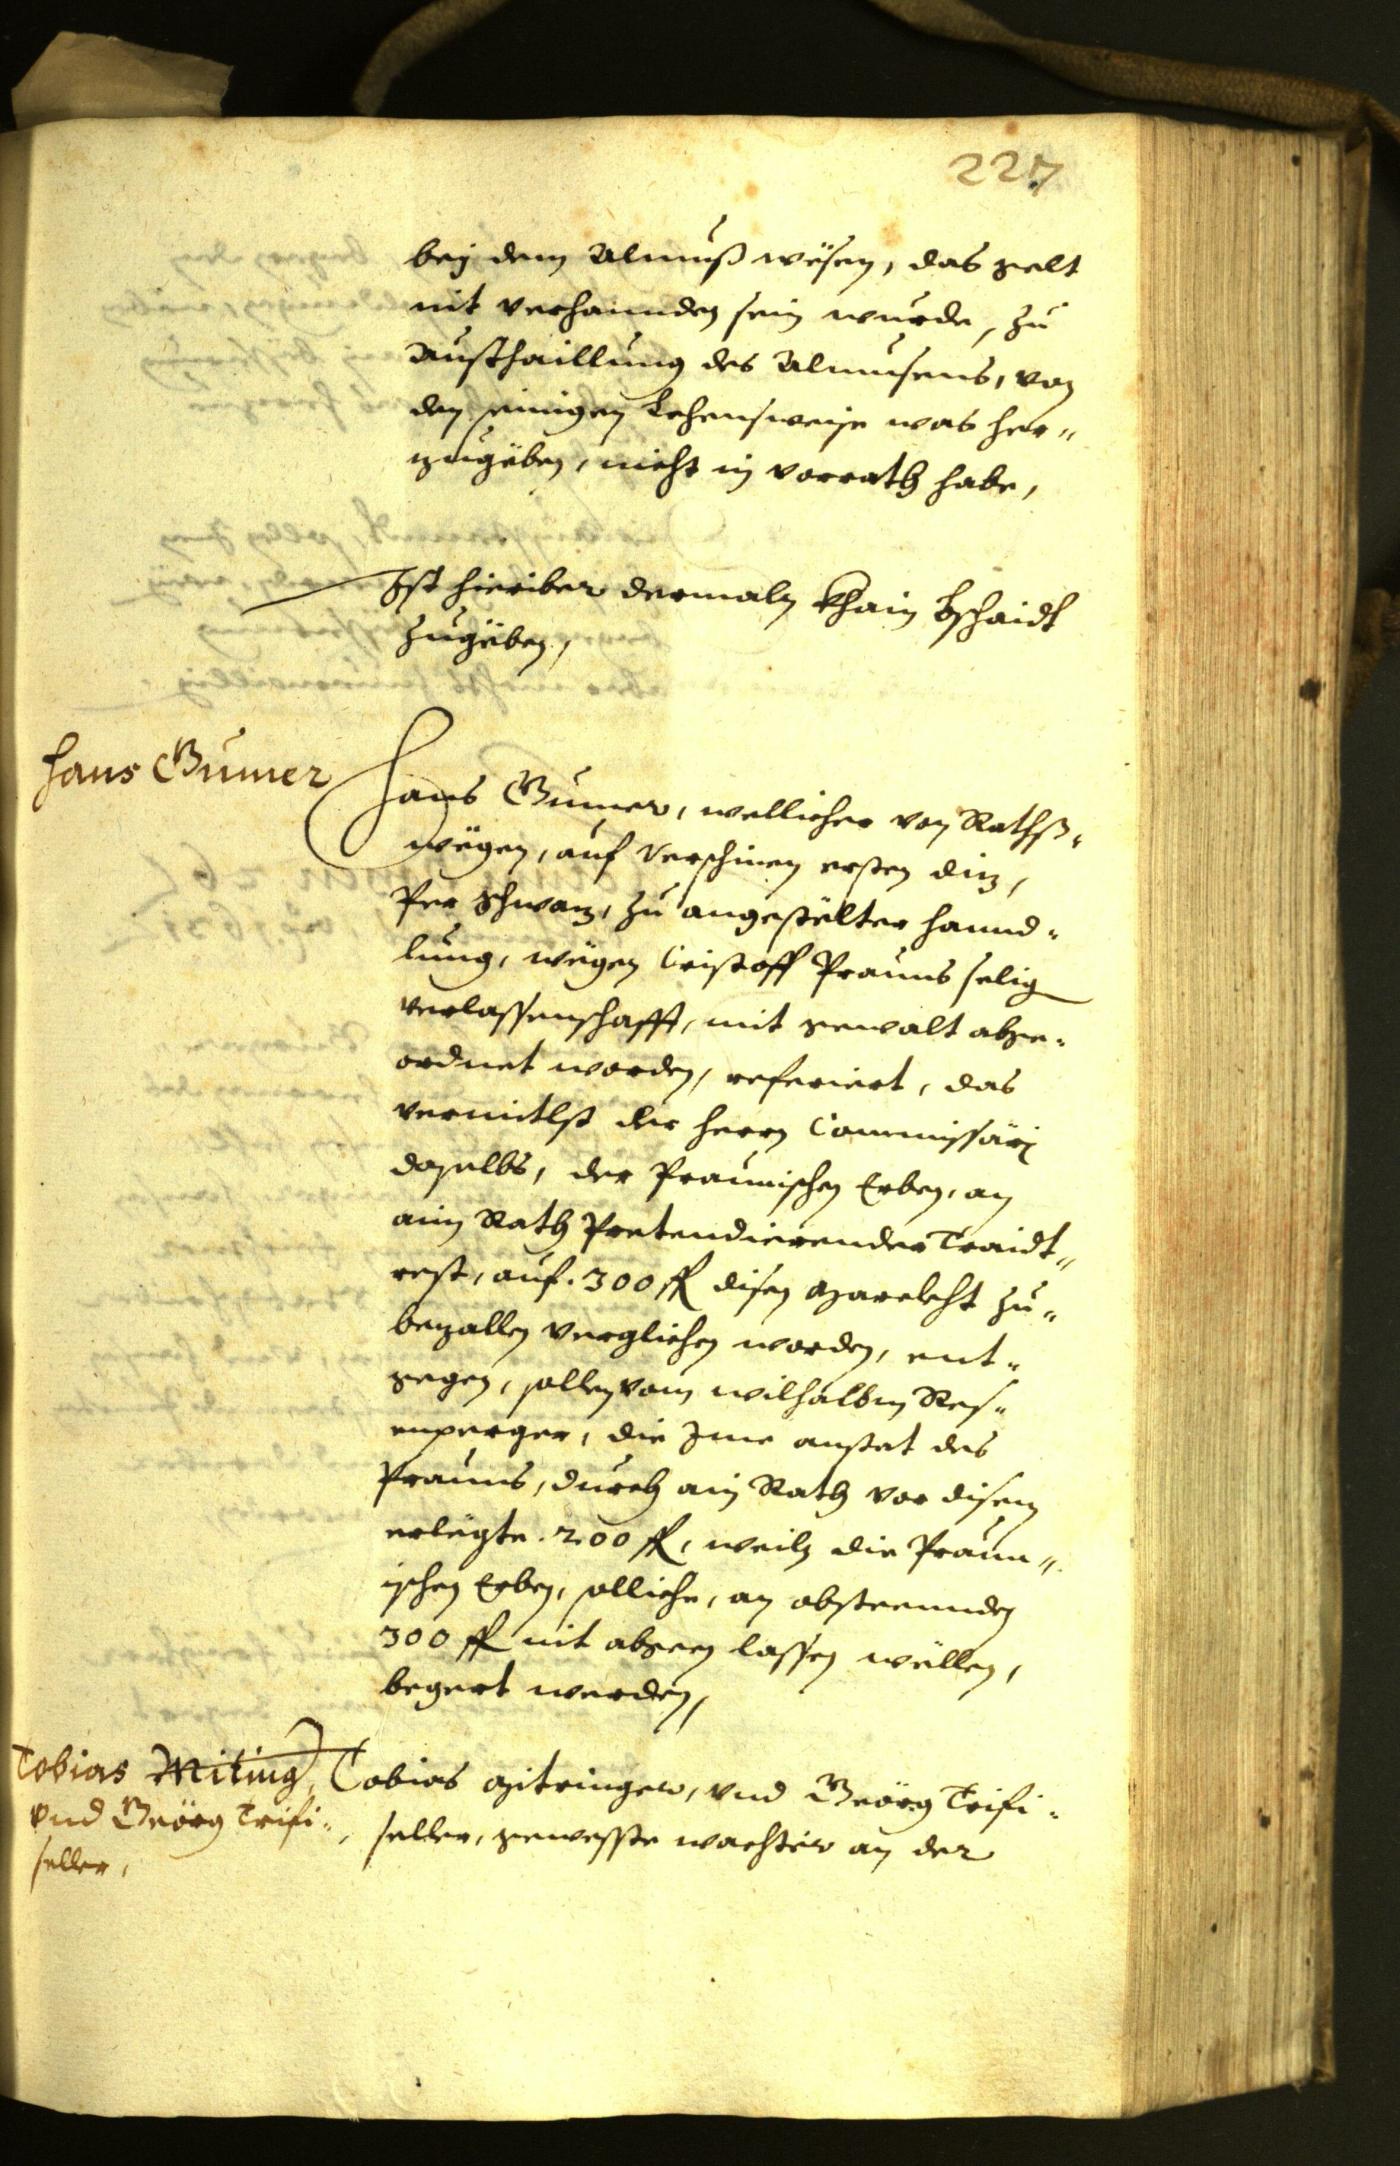 227
bej dem Almueß wësen, das gelt
nit verhannden sein wurde, zu
Austhaillung des Almuesens, von
den seinigen Lehensweise was her-
zugëben, nicht in vorrath habe,
Ist hieriber dermaln khain bschaidt
zugëben,
Hans Gumer
Hans Gumer, wellicher von Rathß-
wëgen, auf verschinen ersten diz,
Per Schwaz, zu angestëlter hannd-
lung, wëgen Cristoff Prauns selig
verlassenschafft, mit gewalt abge-
ordnet worden, referiert, das
vermitlst der herrn Commissärj
daselbs, der Praunischen Erben, an
ain Rath Pretendierender Traidt-
rest, auf 300 fl disen zu-
bezallen verglichen worden, ent-
gegen, sollen vom wilhalbm Res-
enperger, die Ime anstat des
Prauns, durch ain Rath vor disem
erlëgte 200 fl, weiln die Praun-
ischen Erben, solliche, an obsteennden
300 fl nit abgeen lassen wëllen,
begert werden,
Tobias Miting
vnd Geörg Trifi-
seller,
Tobias Mitringer, vnd Geörg Trifi-
seller, geweste wachter an der